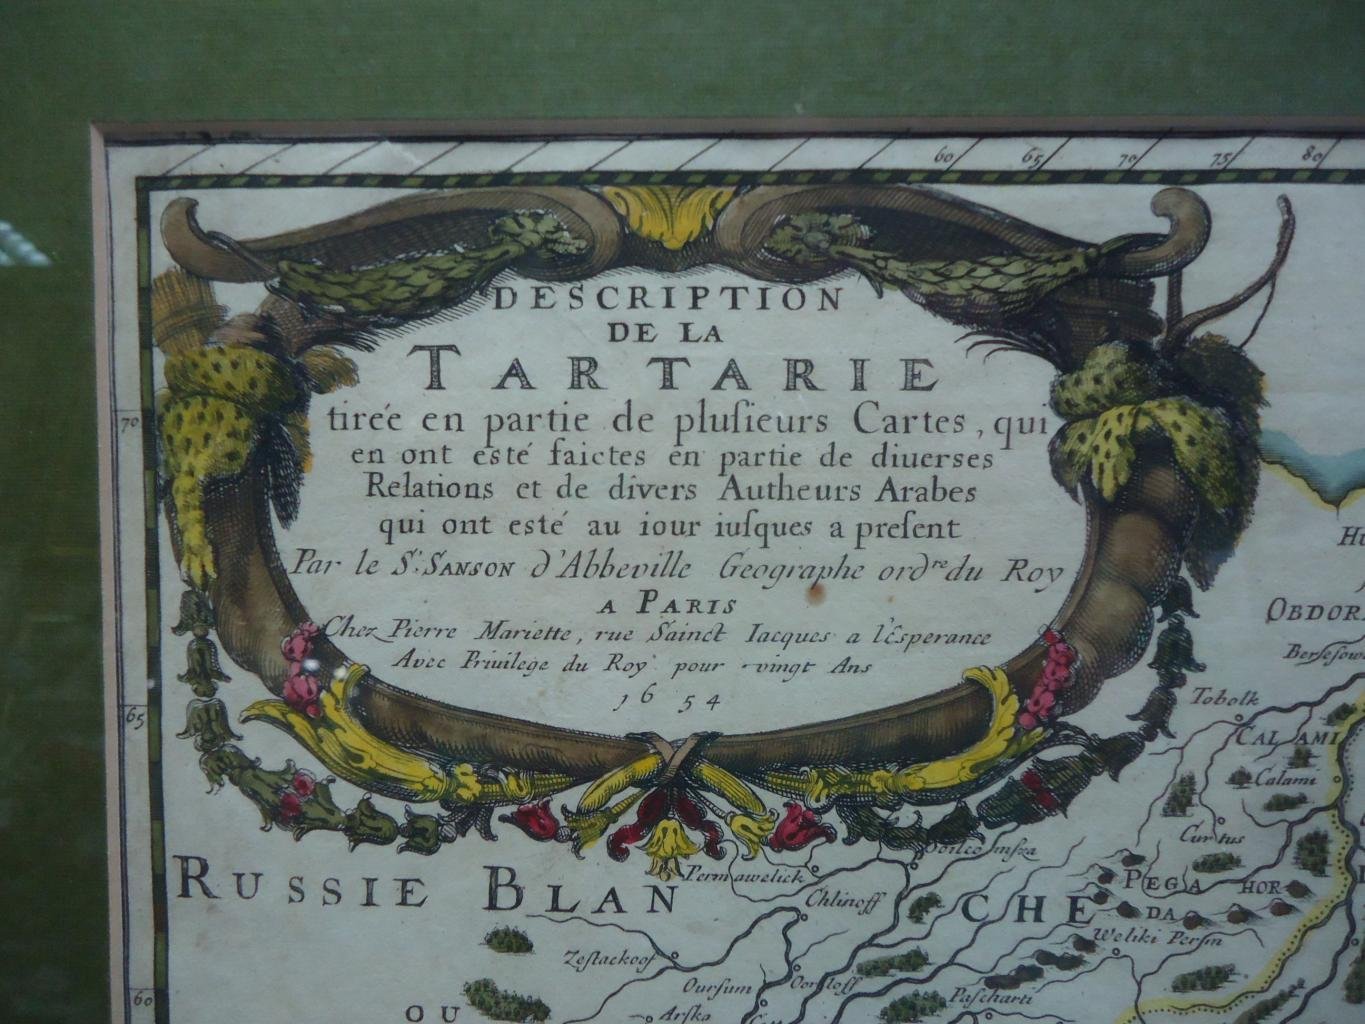 60 65 70 75 80
DESCRIPTION
DE LA
TARTARIE
tirée en partie de plusieurs Cartes, qui
en ont esté faictes en partie de diuerses
Relations et de divers Autheurs Arabes
qui ont esté au iour iusques a present
Par le Sr. SANSON d'Abbeville Geographe ordre du Roy
A PARIS
Chez Pierre Mariette, rue Sainct Iacques a l'Esperance
Avec Priuilege du Roy pour vingt Ans
1654
70
65
60
OBDOR
Tobolk
CALAMI
Calami
Permawelick
Chlinoff
RUSSIE BLAN CHE
PEGA HOR
DA
Weliki Persin
Zestackoof
Oursum
Pascharti
OU
Arska